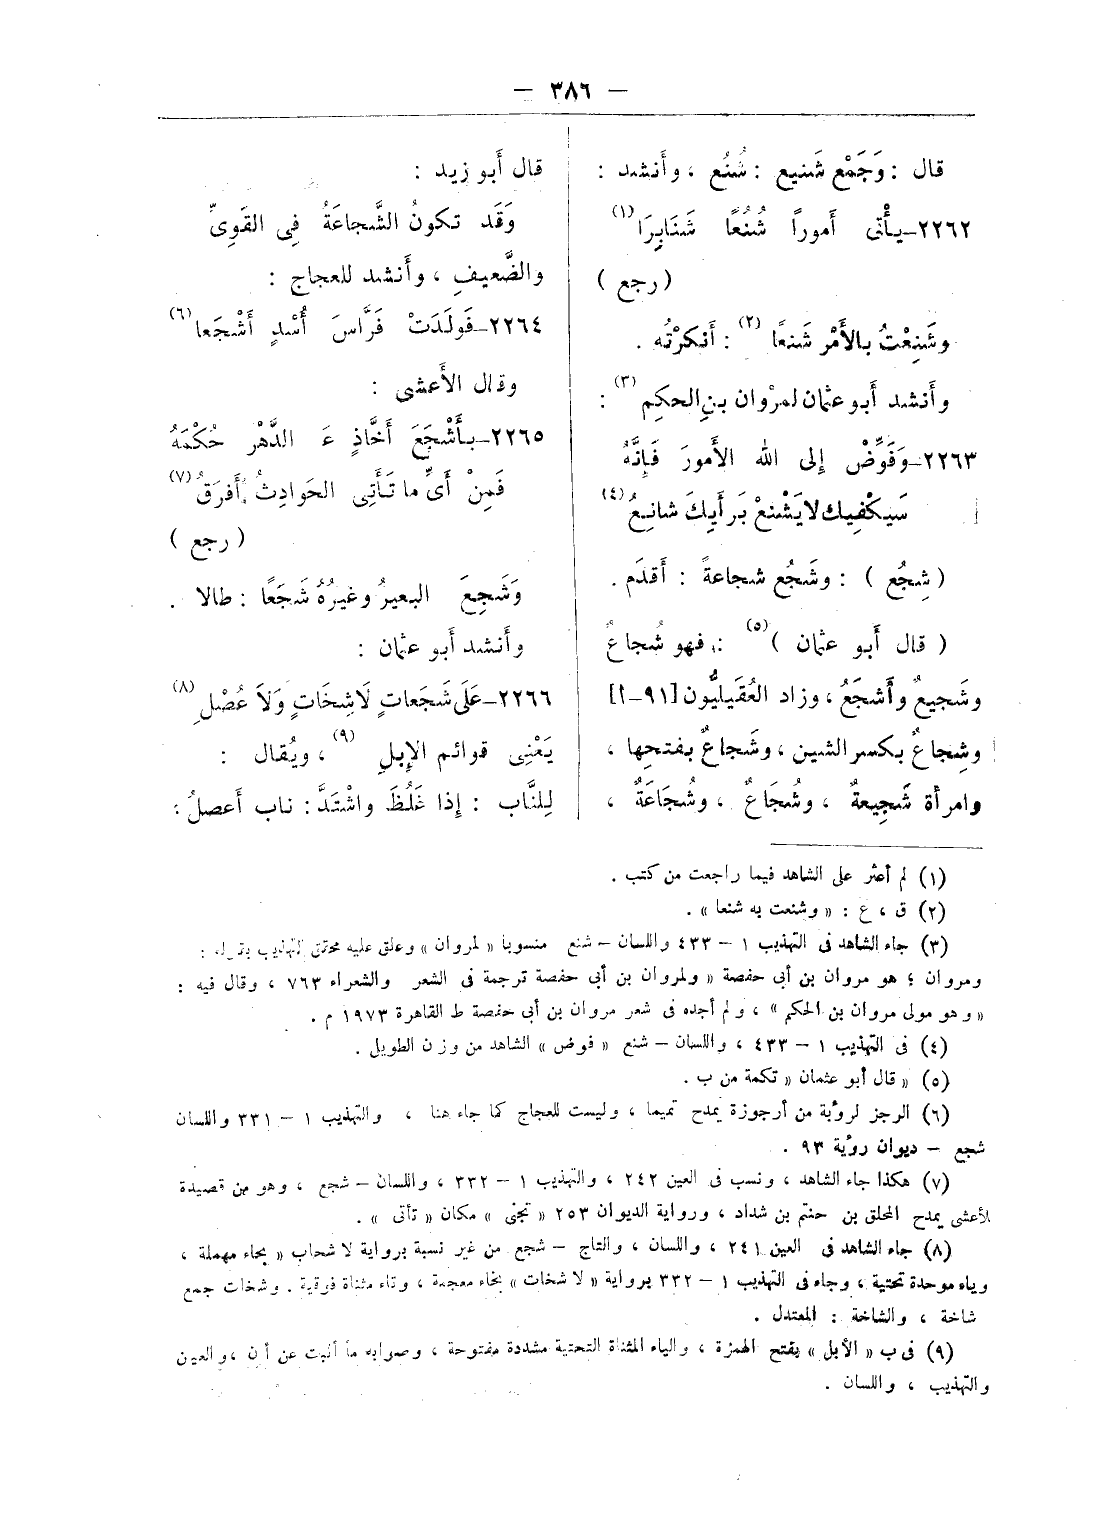 — ٣٨٦ —
قال : وَجَمْع شَنيع : شُنُع ، وأَنشد :
٢٢٦٢ـ يأْتى أَموراً شُنُعًا شَنَابِرَا (١)
( رجع )
وشَنِعْتُ بالأَمْر شَنعًا (٢) : أَنكرْتُه .
وأَنشد أَبو عثمان لمرْوان بنِ الحكِم (٣) :
٢٢٦٣ـ وَفَوِّضْ إِلى الله الأَمورَ فَإِنَّهُ
سَيَكْفِيك لا يَشْنعْ بَرأيِكَ شانِعُ (٤)
( شجُع ) : وشَجُع شجاعةً : أَقدَم .
( قال أَبو عثمان ) (٥) : فهو شُجاعٌ
وشَجيعٌ وأَشجَعُ ، وزاد العُقَيليُّون [٩١-أ]
وشِجاعٌ بكسر الشين ، وشَجاعٌ بفتحِها ،
وامرأة شَجِيعةٌ ، وشُجَاعٌ ، وشُجَاعَةٌ ،
قال أَبو زيد :
وَقَد تكونُ الشَّجاعَةُ فِى القَوِىِّ
والضَّعيفِ ، وأَنشد للعجاج :
٢٢٦٤ـ فَولَدَتْ فَرَّاسَ أُسْدٍ أَشْجَعا (٦)
وقال الأَعشى :
٢٢٦٥ـ بأَشْجَعَ أَخَّاذٍ عَ الدَّهْر حُكْمَهُ
فَمِنْ أَىِّ ما تَأَتِى الحَوادِثُ أَفرَقُ (٧)
( رجع )
وَشَجِعَ البعيرُ وغيرُهُ شَجَعًا : طالا .
وأَنشد أَبو عثمان :
٢٢٦٦ـ عَلَى شَجَعاتٍ لَا شِخَاتٍ وَلَا عُصْلِ (٨)
يَعْنِى قوائم الإِبلِ (٩) ، ويُقال :
لِلنَّاب : إِذا غَلُظَ واشْتَدَّ : ناب أَعصلُ :
(١) لم أعثر على الشاهد فيما راجعت من كتب .
(٢) ق ، ع : « وشنعت به شنعا » .
(٣) جاء الشاهد فى التهذيب ١ – ٤٣٣ واللسان – شنع منسوبا « لمروان » وعلق عليه محقق التهذيب بقوله :
ومروان ؛ هو مروان بن أبى حفصة « ولمروان بن أبى حفصة ترجمة فى الشعر والشعراء ٧٦٣ ، وقال فيه :
« وهو مولى مروان بن الحكم » ، ولم أجده فى شعر مروان بن أبى حفصة ط القاهرة ١٩٧٣ م .
(٤) فى التهذيب ١ – ٤٣٣ ، واللسان – شنع « فوض » الشاهد من وزن الطويل .
(٥) « قال أبو عثمان « تكمة من ب .
(٦) الرجز لرؤبة من أرجوزة يمدح تميما ، وليست للعجاج كما جاء هنا ، والتهذيب ١ – ٣٣١ واللسان
شجع – ديوان رؤبة ٩٣ .
(٧) هكذا جاء الشاهد ، ونسب فى العين ٢٤٢ ، والتهذيب ١ – ٣٣٢ ، واللسان – شجع ، وهو من قصيدة
لأعشى يمدح المحلق بن حنتم بن شداد ، ورواية الديوان ٢٥٣ « تجنى » مكان « تأتى » .
(٨) جاء الشاهد فى العين ٢٤١ ، واللسان ، والتاج – شجع من غير نسبة برواية لا شحاب « بحاء مهملة ،
وباء موحدة تحتية ، وجاء فى التهذيب ١ – ٣٣٢ برواية « لا شخات » بخاء معجمة ، وتاء مثناة فوقية . وشخات جمع
شاخة ، والشاخة : المعتدل .
(٩) فى ب « الأبل » بفتح الهمزة ، والياء المثناة التحتية مشددة مفتوحة ، وصوابه ما أثبت عن أ ، والعين
والتهذيب ، واللسان .